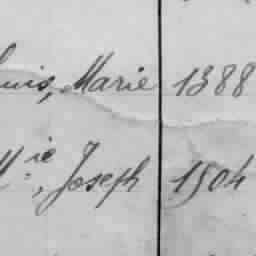 uis, Marie 1388
M.ie, Joseph 1504